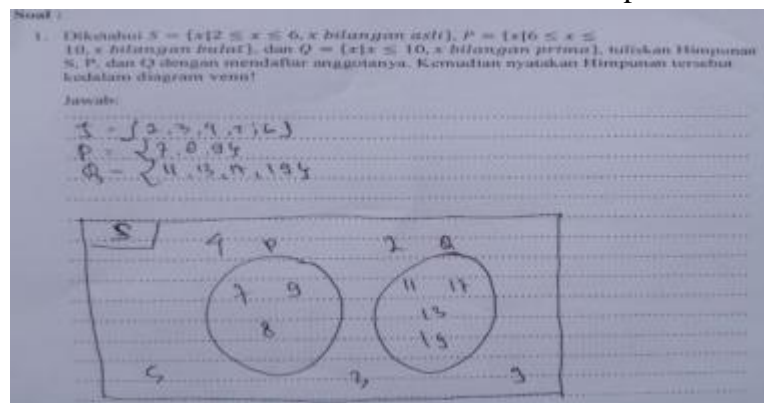 Soal :
1. Diketahui S = {x|2 ≤ x ≤ 6, x bilangan asli}, P = {x|6 ≤ x ≤
10, x bilangan bulat}, dan Q = {x|x ≤ 10, x bilangan prima}, tuliskan Himpunan
S, P, dan Q dengan mendaftar anggotanya. Kemudian nyatakan Himpunan tersebut
kedalam diagram venn!
Jawab:
S = {2, 3, 4, 5, 6}
P = {7, 8, 9}
Q = {11, 13, 17, 19}
S
4 P 2 Q
7 9 11 17
8 13
19
5